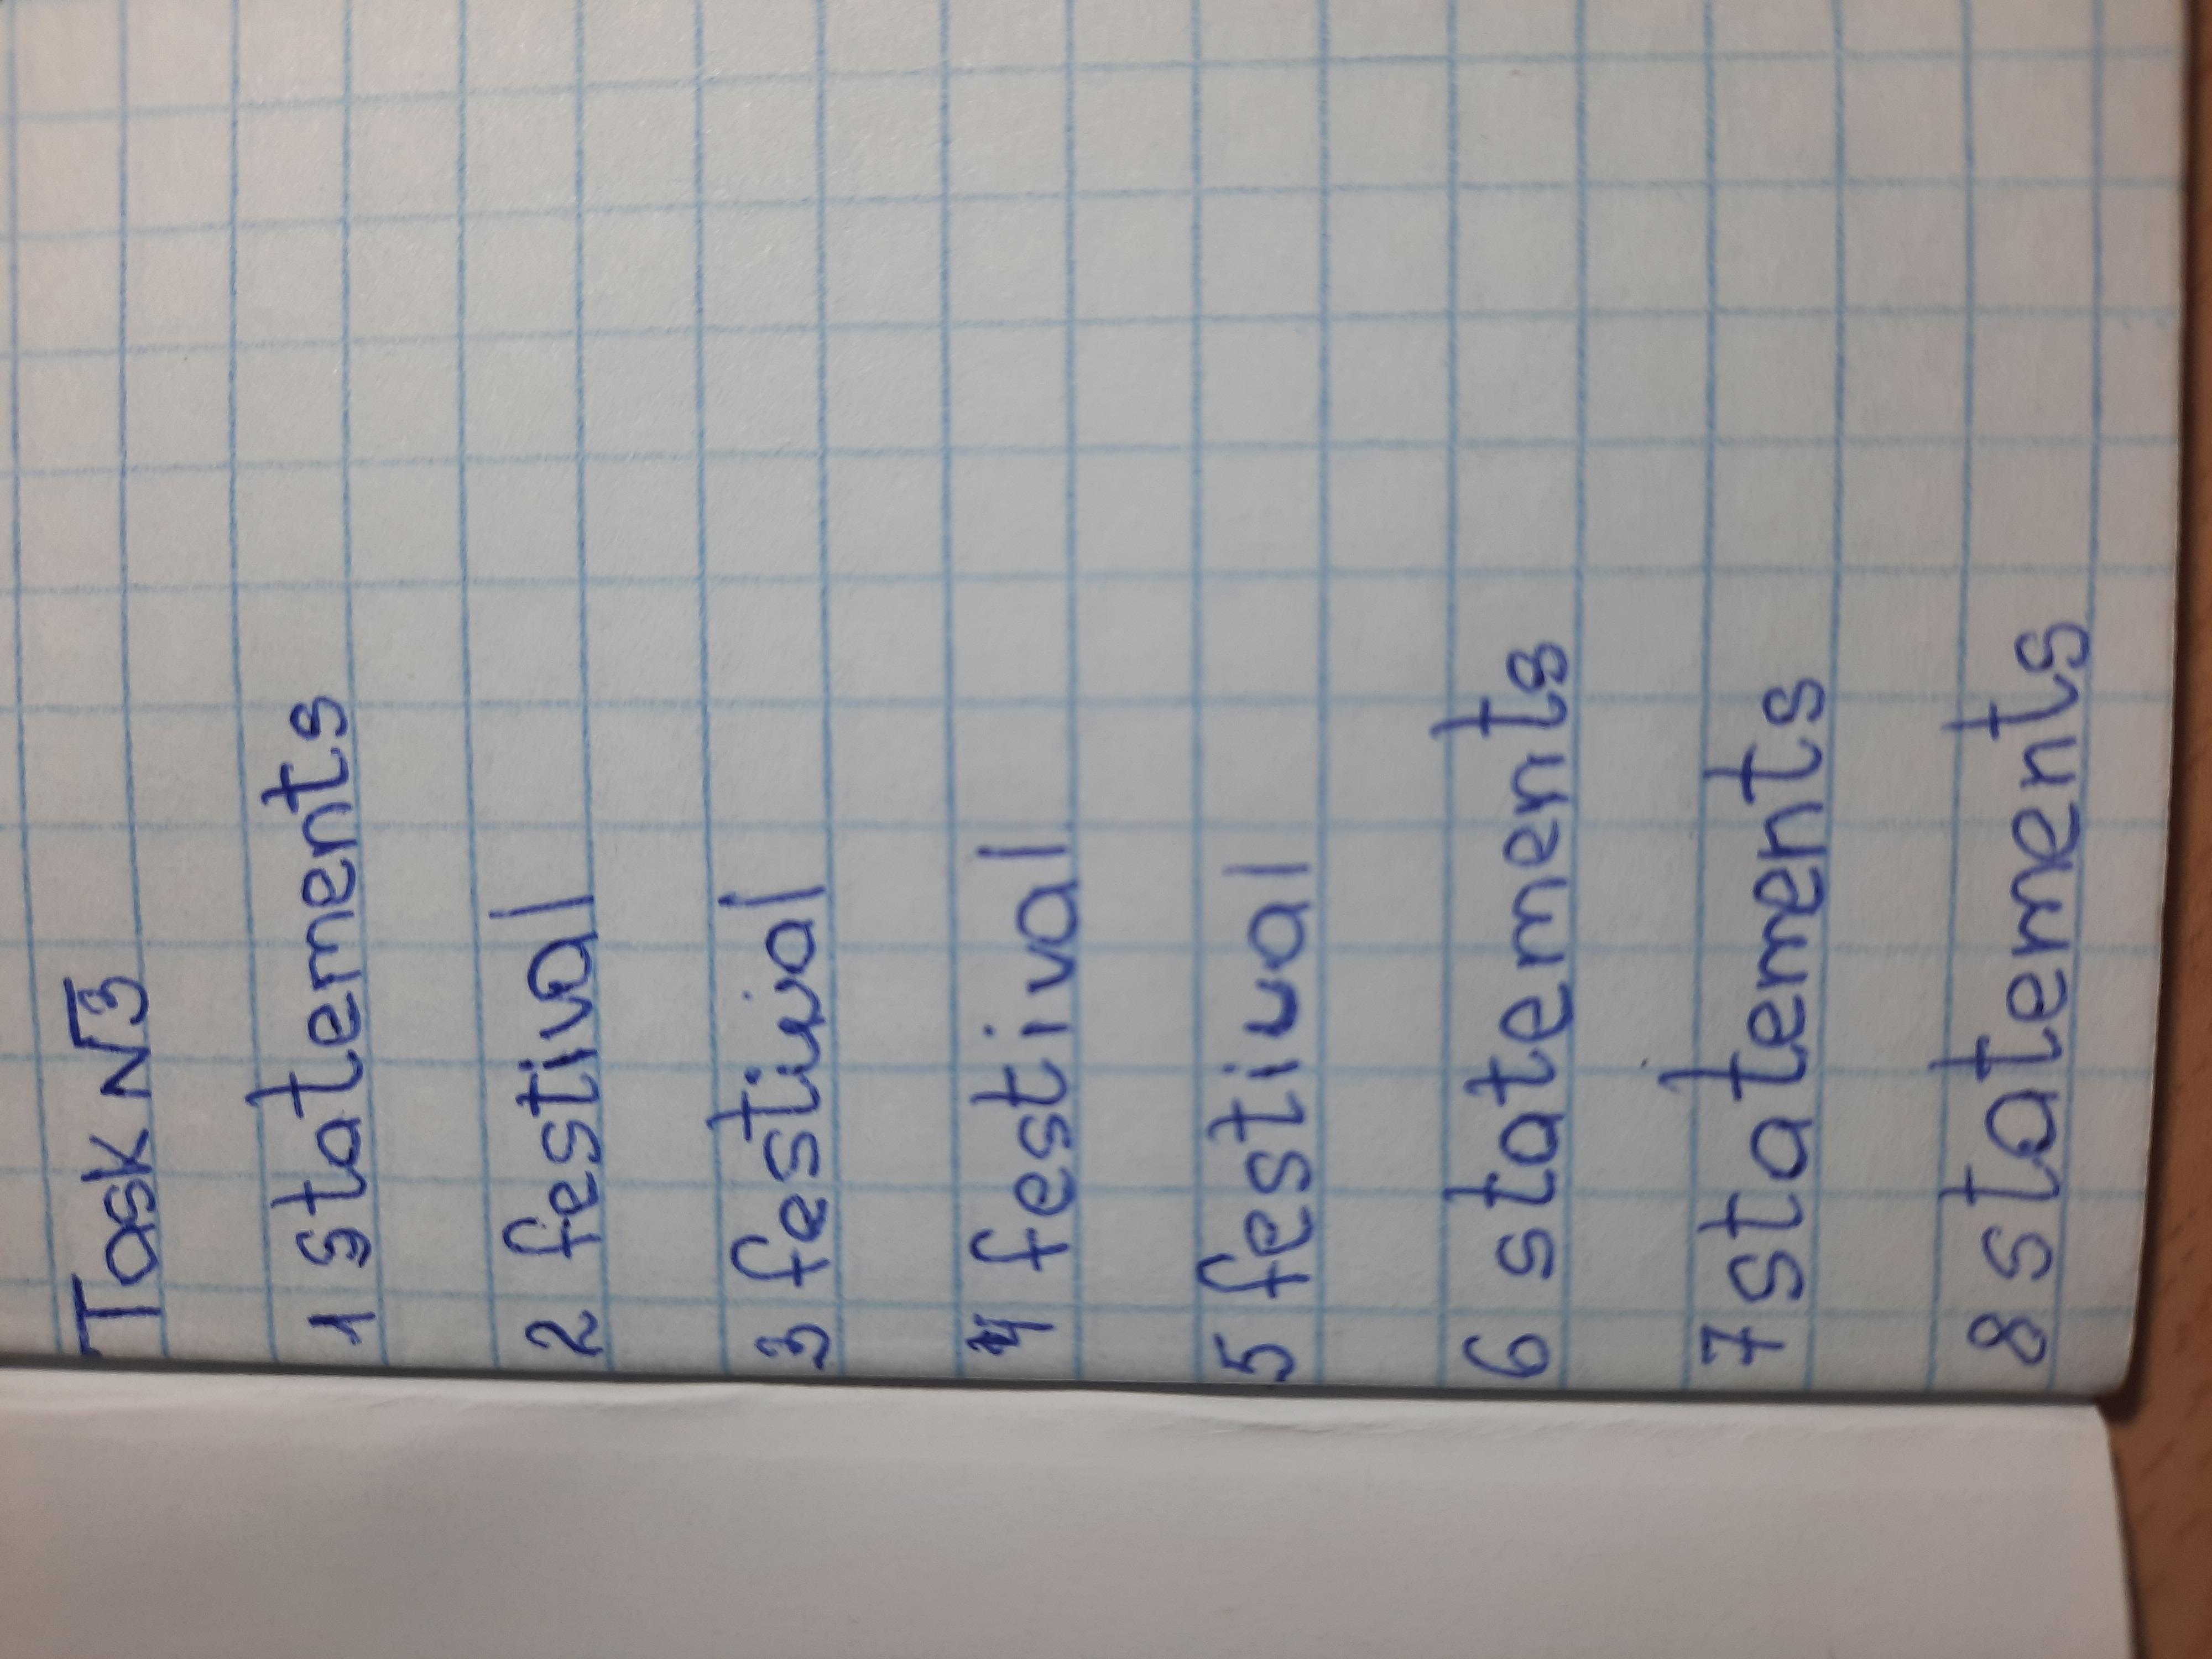 Task №3
1 statements
2 festival
3 festival
4 festival
5 festival
6 statements
7 statements
8 statements